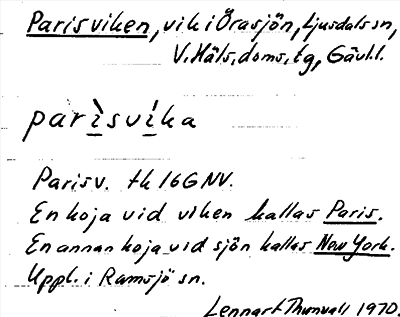 Parisviken, vik i Örasjön, Ljusdals sn,
V. Häls. doms. tg, Gävl.l.
parìsvika
Parisv. tk 16G NV.
En koja vid viken kallas Paris.
En annan koja vid sjön kallas New York.
Uppl. i Ramsjö sn.
Lennart Thunvall 1970.